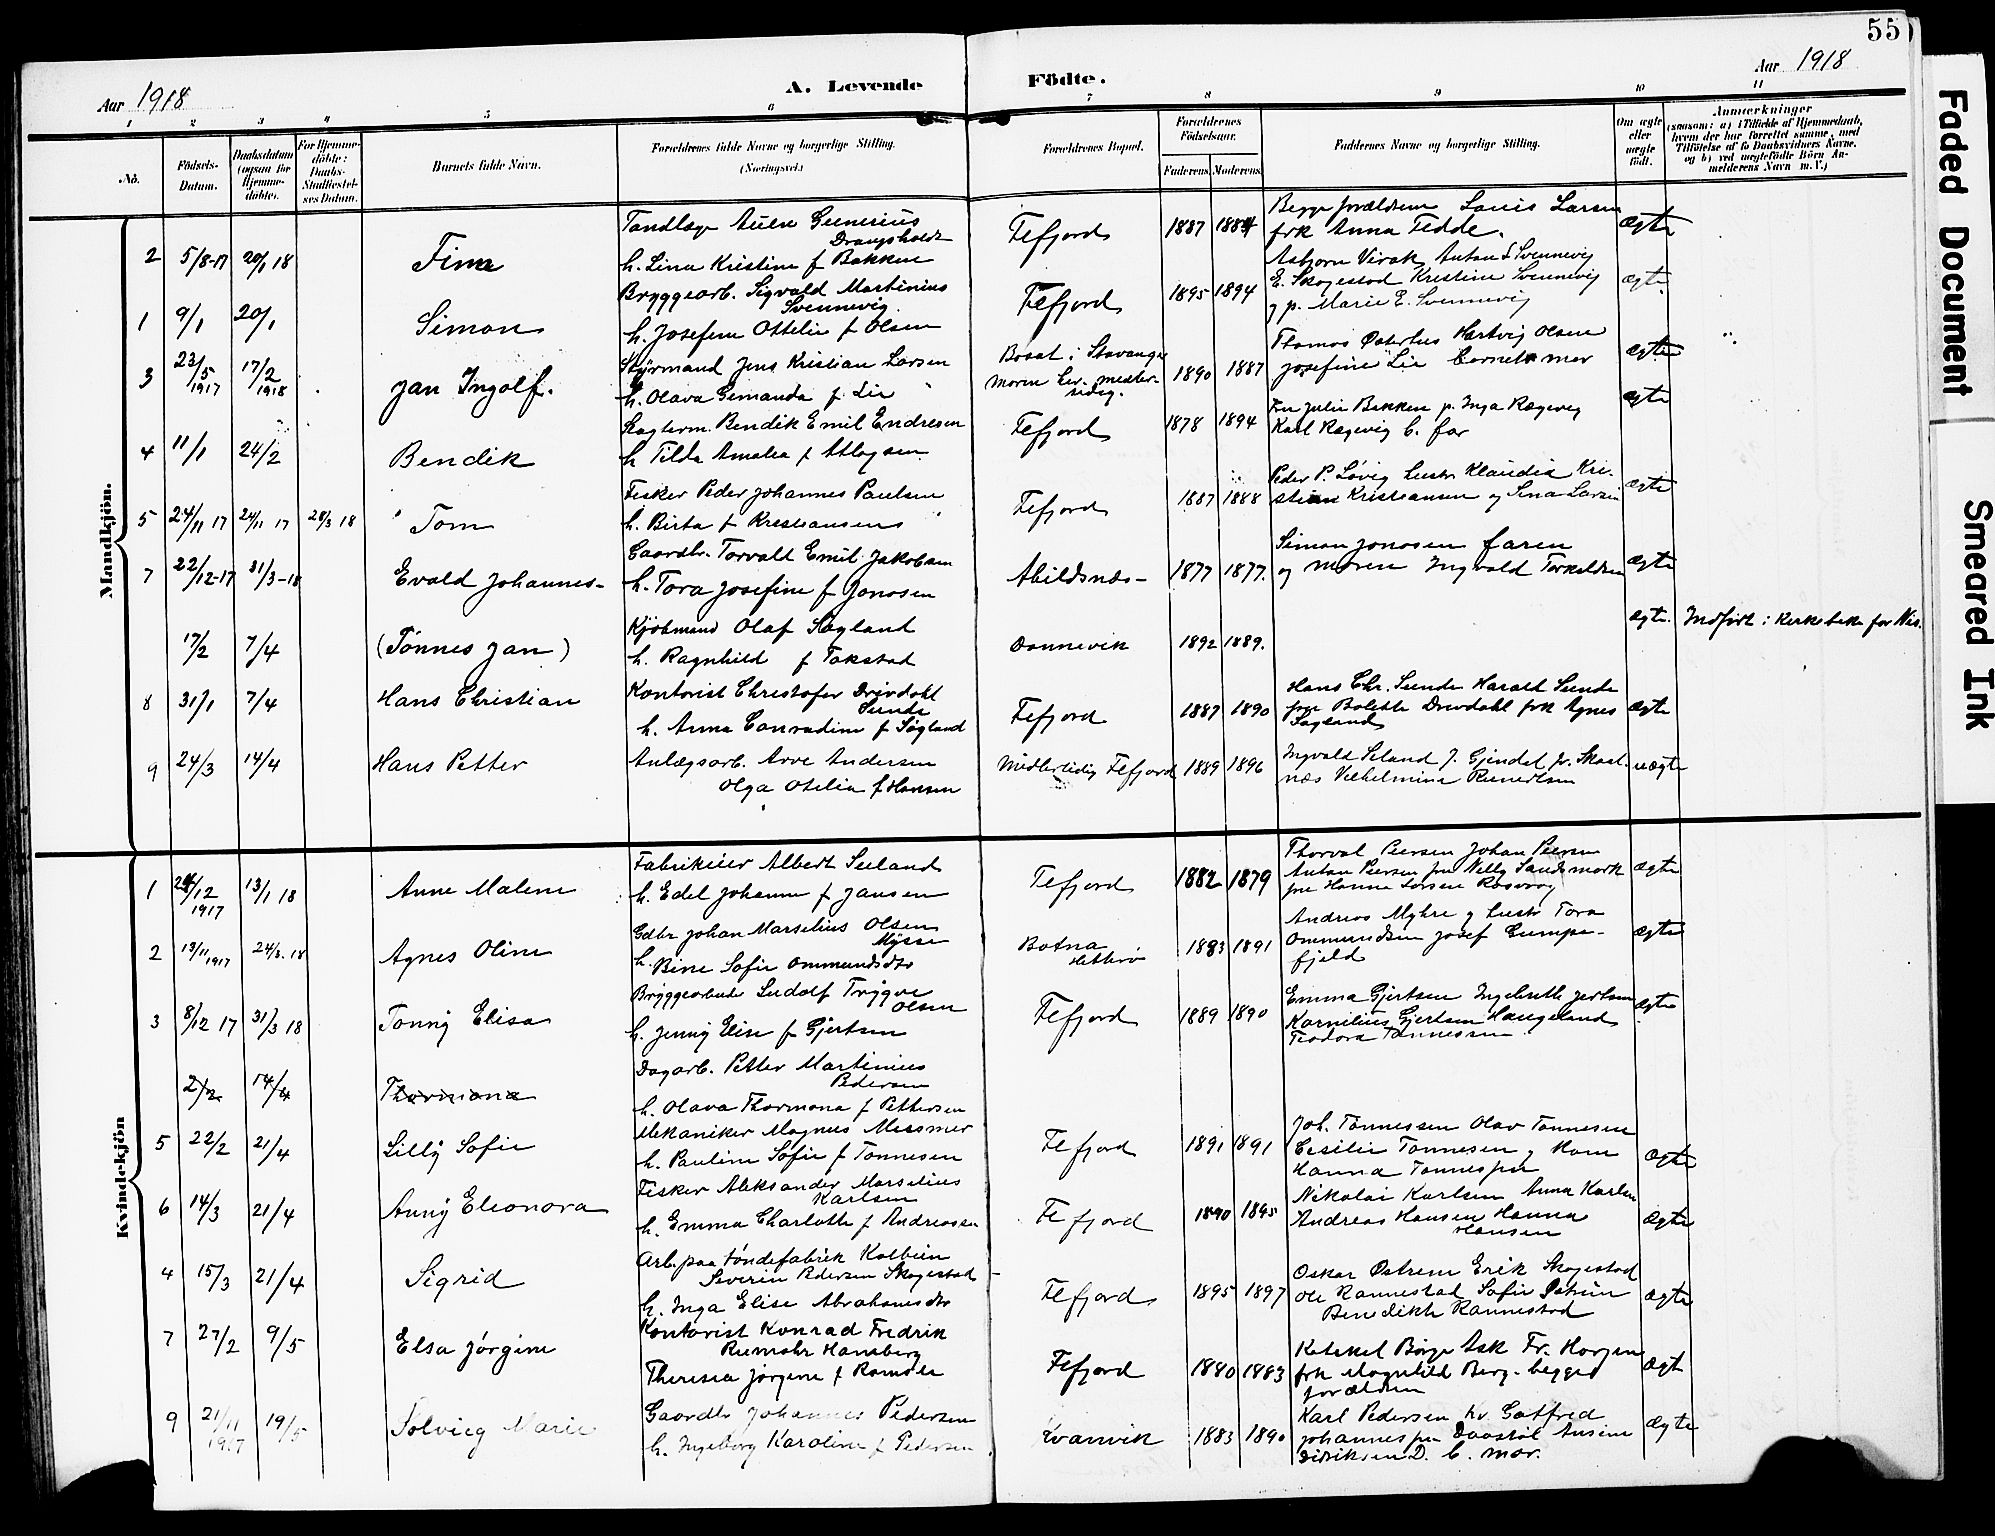 55
Aar 1918
A. Levende Födte.
Aar 1918
1 2 3 4 5 6 7 8 9 10 11
No.
Födsels-Datum.
Daabsdatum (ogsaa for Hjemmedøbte).
For Hjemmedøbte: Daabs-Stadfæstelses Datum.
Barnets fulde Navn.
Forældrenes fulde Navne og borgerlige Stilling. (Næringsvei.)
Forældrenes Bopæl.
Forældrenes Födselsaar.
Faderens Moderens
Faddernes Navne og borgerlige Stilling.
Om ægte eller uægte født.
Anmærkninger
(saasom: a) i Tilfælde af Hjemmedaab, hvem der har forrettet samme, med Tilföielse af to Daabsvidners Navne, og b) ved uægtefödte Börn Anmelderens Navn m. V.)
Mandkjön.
2 5/8-17 20/1 18
Tandlæge
h. Lina Kristine f Bakken
Fefjord 1887
Begge forældrene Louis Larsen
frk Anna Fedde.
ægte
1 9/1 20/1 Simon
Bryggearb. Sigvald Martinius
Svennevig
h. Josefine Ottelie f Olsen
Fefjord 1895 1894
E. Skogestad Kristine Svennevig
g p. Marie E. Svennevig
ægte
3 23/5 1917 17/2 1918 Jan Ingolf.
Styrmand Jens Kristian Larsen
h. Olava Gemanda f Lie
Bosat i Stavanger
1890 1887
Thomas Hartvig Olsen
Josefine Lie barnets mor
ægte
4 11/1 24/2 Bendik
Bendik Emil Endresen
h Tilda Amalia f
Fefjord 1878 1894
Fru Julie Bakken p. Inga Rægevig
Karl Rægevig b. far
ægte
5 24/11 17 24/11 17 28/3 18 Tom
Fisker Peder Johannes Paulsen
h. Birta f Kristiansen
Fefjord 1887 1888
Peder P. Løvig hustr Klaudia Kri-
stian Kristiansen g Sina Larsen
ægte
7 22/12-17 31/3-18 Evald Johannes-
Gaardbr. Torvald Emil Jakobsen
h. Tora Josefine f Jonosen
Abildsnæs- 1877 1877.
Simon Jonosen faren
og moren Ingvald Torkeldsen
ægte
17/2 7/4 (Tønnes Jan)
Kjøbmand Olaf Søgland
h. Ragnhild f Tokstad
1892 1889.
ægte. Indført i Kirkebok for
8 31/1 7/4 Hans Christian
Kontorist Christofer Drivdahl
Sunde
h. Anna Conradine f Søgland
Fefjord 1887 1890
Hans Chr. Sunde Harald Sunde
fru Bolette Drivdahl frk Agnes
Søgland
ægte
9 24/3 14/4 Hans Petter
Anlægsarb. Arve Andersen
Olga Otelia f Hansen
Midlertidig Fefjord 1889 1896
Ingvald Seland J. Gjendal
næs Vilhelmine
uægte
Kvindekjön
1 1917 13/1 18 Anne Malene
Fabrikeier Albert Seeland
h. Edel Johanne f Jansen
Fefjord 1882 1879
Thorval Peersen Johan Peersen
Anton Peersen fru Nelly Sandsmark
fru Hanne
ægte
2 13/11 1917 24/3. 18 Agnes Oline
Gdbr Johan Marselius Olsen
h. Bine Sofie Ommundsdtr
Botna
Hitterø 1883 1891
Andreas Myhre g hustr Tora
Ommundsen Josef Gumpe-
fjeld
ægte
3 8/12 17 31/3 18 Tonny Elisa
Bryggearbeider Ludolf Trygve
Olsen
h. Jenny Elise f Gjertsen
Fefjord 1889 1890
Emma Gjertsen
Kornelius Gjertsen Haugeland
Teodora Tønnessen
ægte
2/2 14/4 Thormona
Dagarb. Petter Martinius
Pedersen
h. Olava Thormona f Pettersen
5 22/2 21/4 Lilly Sofie
Mekaniker Magnus Messmer
h. Pauline Sofie f Tønnesen
Fefjord 1891 1891
Joh. Tønnessen Olav Tønnesen
Cesilie Tønnesen g
Hanna Tønnessen
ægte
6 14/3 21/4 Anny Eleonora
Fisker Aleksander Marselius
Karlsen
h. Emma Charlotte f Andreasen
Fefjord 1890 1895
Nikolai Karlsen Anna Karlsen
Andreas Hansen Hanna
Hansen
ægte
4 15/3 21/4 Sigrid
Arb. paa tøndefabrik Kolbein
Severin Pedersen Skogestad
h. Inga Elise Abrahamsdtr
Fefjord 1895 1897
Oskar Østrem Erik Skogestad
Ole Rannestad Sofie Østrem
Benedikte Rannestad
ægte
7 27/2 9/5 Elsa Jørgine
Kontorist Konrad Fredrik
Rumohr Hamberg
Theresia Jørgine f
Fefjord 1880 1883
Børge Ask Fr. Horjen
frk Magnhild Berg. begge
forældren
ægt
9 21/11 1917 19/5 Solvieg Marie
Gaardbr Johannes Pedersen
h. Ingeborg Karoline f Pedersen
Kvanvik 1883 1890
Karl Pedersen hv Gotfred
Johannes
Didriksen D. b. mor.
ægte
Faded Document
Smeared Ink